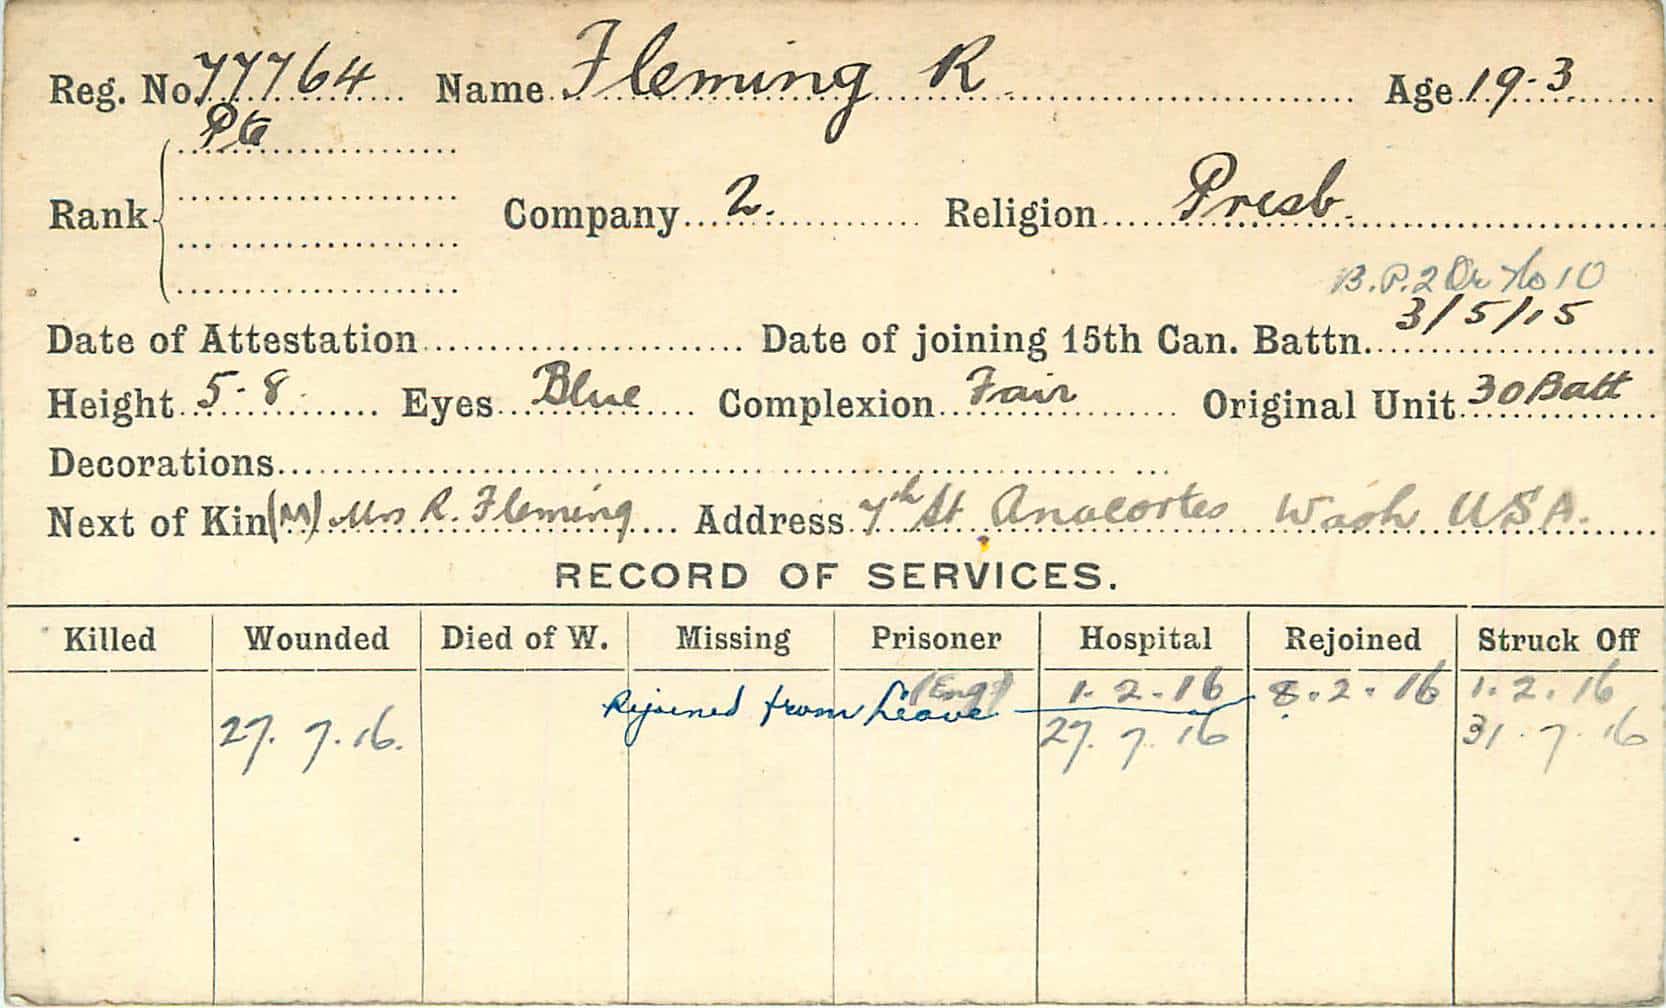 Reg. No. 77764 Name Fleming R. Age 19-3
Rank Pte Company 2. Religion Presb.
B.P.2 Or No 10
Date of Attestation Date of joining 15th Can. Battn. 3/5/15
Height 5-8 Eyes Blue Complexion Fair Original Unit 30 Batt
Decorations
Next of Kin (M) Mrs R. Fleming Address 7th St Anacortes Wash USA.
RECORD OF SERVICES.
Killed Wounded Died of W. Missing Prisoner Hospital Rejoined Struck Off
Rejoined from Leave (Eng) 1.2.16 8.2.16 1.2.16
27.7.16. 27.7.16 31.7.16